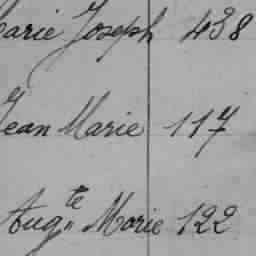 Marie Joseph 438
Jean Marie 117
Aug.te Marie 122